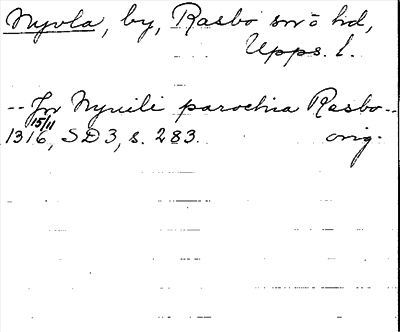 Nyvla, by, Rasbo sn o hd,
Upps. l.
-- In Nyuili parochia Rasbo --
15/11
1316, SD 3, s. 283. orig.